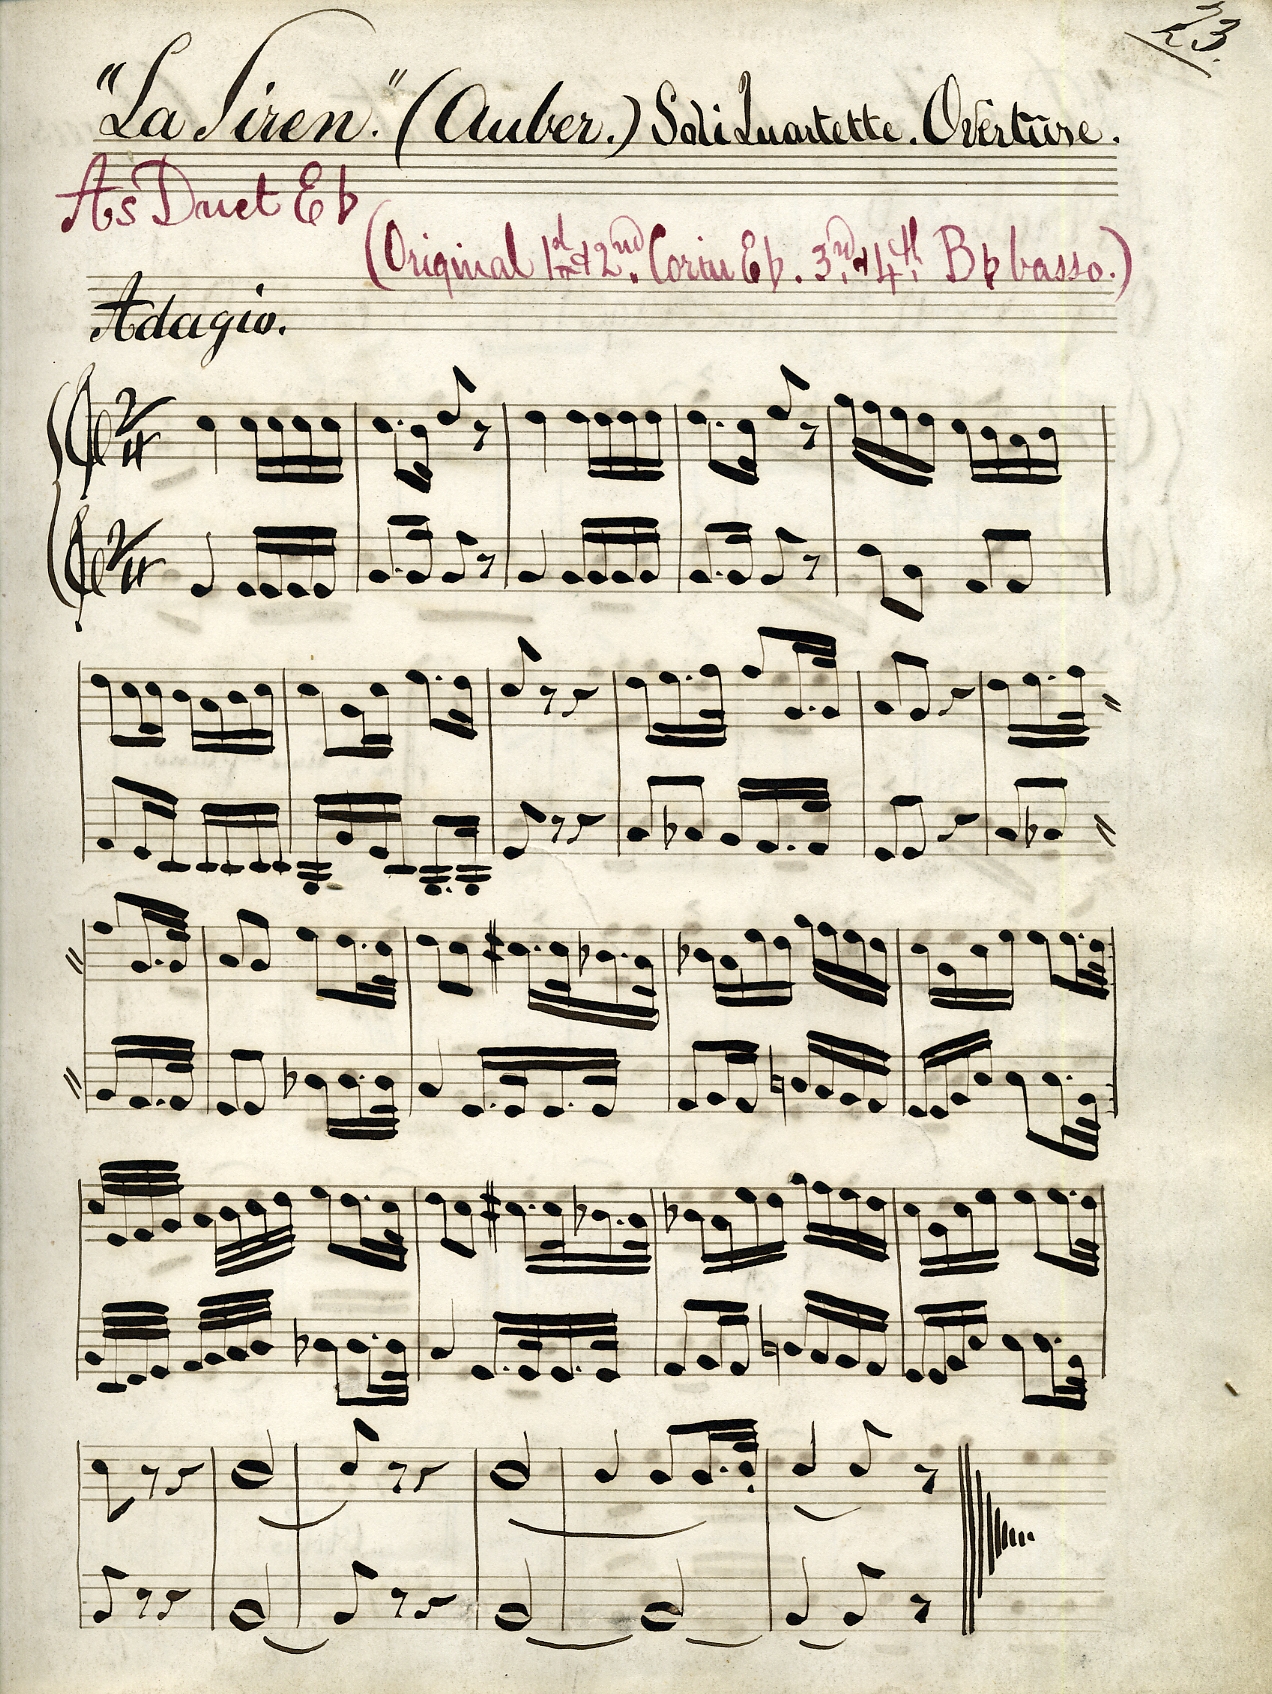 23.
"La Siren." (Auber.) Soli Quartette. Overture.
As Duet E♭
(Original 1st and 2nd Corni E♭. 3rd & 4th B♭ basso.)
Adagio.
2/4
2/4